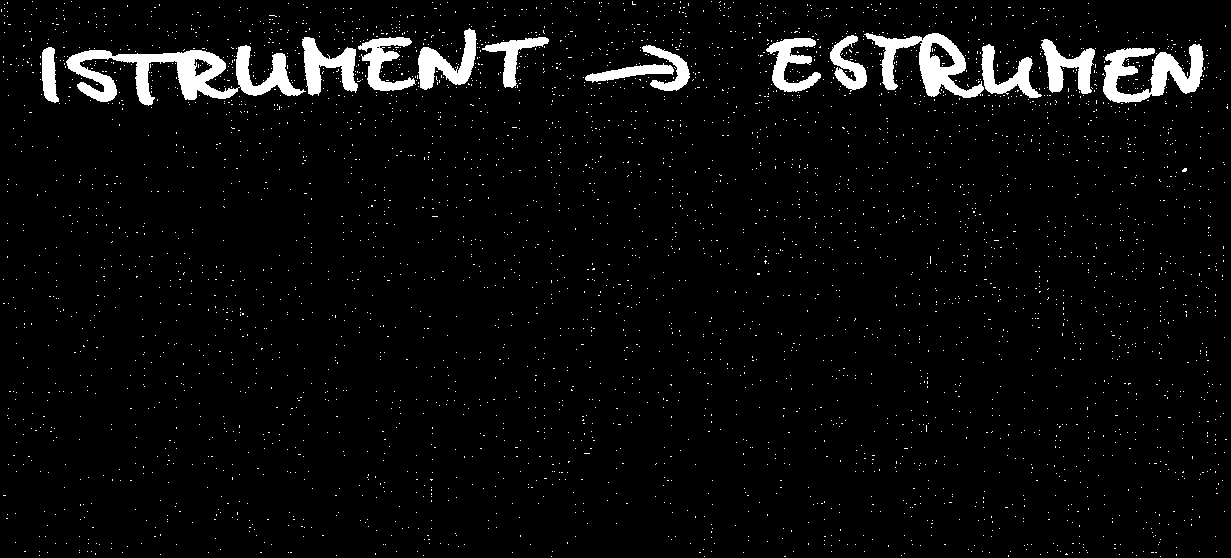 ISTRUMENT → ESTRUMEN